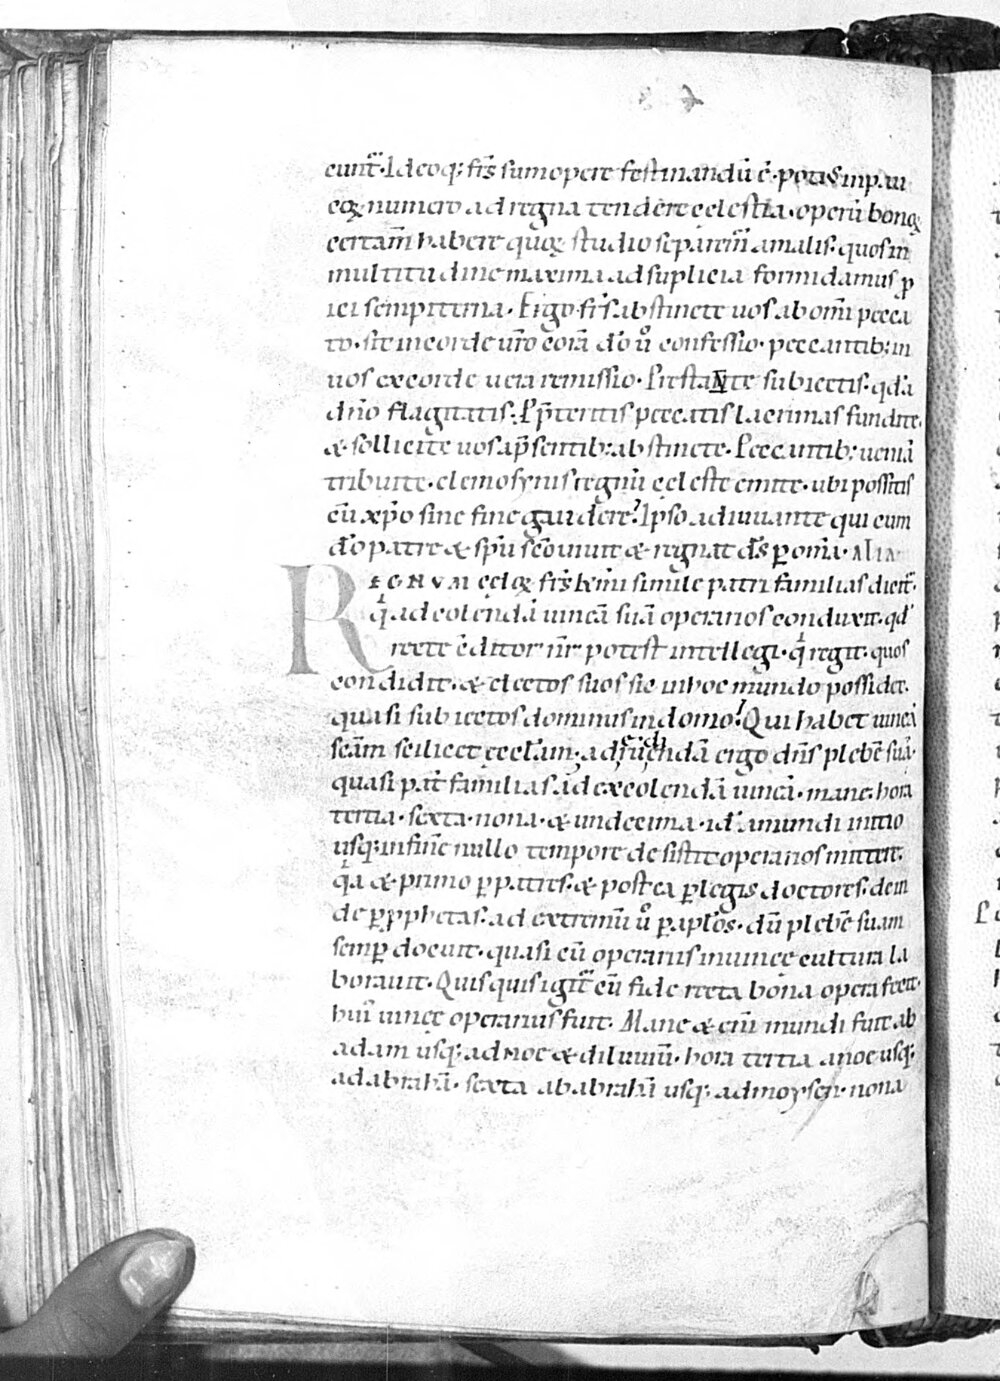 cunt̃· Ideoq; frs̄ sumopere festinandū ē· potiꝰ inpau
coꝝ numero ad regna tendere celestia· operū bonoꝝ
certam̄ habere quoꝝ studio separem̄ a malis· quos in
multitudine maxima ad suplicia formidamus ꝓ
ici sempiterna· Ergo frs̄ abstinete uos ab om̄i pecca
to· sit in corde ur̄o corā do̅ u̅ confessio· peccantib; in
uos ex corde uera remissio· Prestante subiectis· qd̓ a
dn̄o flagitatis· P̄teritis peccatis lacrimas fundite·
& sollicite uos a p̄sentib; abstinete· Peccantib; ueniā
tribuite· elemosynis regnū celeste emite· ubi possitis
cū xp̄o sine fine gaudere· Ipso adiuuante qui cum
do̅ patre & spū sc̄o uiuit & regnat ds̄ ꝑ om̄ia· ALIA
REGNUM celoꝝ frs̄ k̄mi simile patri familias dicit̃
q̄ ad colendā uineā suā operarios conduxit· qd̓
recte cōditor nr̄ potest intellegi· q̄ regit quos
condidit· & electos suos sic in hoc mundo possidet·
quasi subiectos dominus in domo· Qui habet uineā
scām scilicet eccłam· ad erudiendā ergo dn̄s plebē suā·
quasi pat̄ familias ad excolendā uineā· mane· hora
tertia· sexta· nona· & undecima· id ē a mundi initio
usq; in finē nullo tempore desistit operarios mittere·
q̄a & primo ꝑ patres· & postea ꝑ legis doctores· dein
de ꝑ ꝓphetas· ad extremū u̅ ꝑ aptōs· dū plebē suam
semꝑ docuit· quasi cū operariis in uineę cultura la
borauit· Quisquis igit̃ cū fide recta bona opera fecit·
hui̓ uineę operarius fuit· Mane & eni̅ mundi fuit ab
adam usq; ad noe & diluuiū· hora tertia a noe usq;
ad abrahā· sexta ab abrahā usq; ad moysen· nona